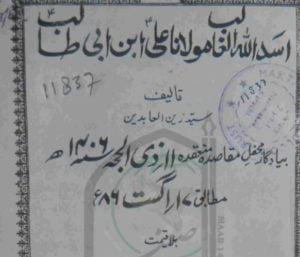 اسد اللہ الغالب مولانا علی ابن ابی طالب
11837
تالیف
سید زین العابدین
بیادگار محفل مقاصدہ منعقدہ ۱۱ ذی الحجہ سنہ ۱۴۰۶ ھ
مطابق ۱۷ اگست ۸۶ء
بلا قیمت